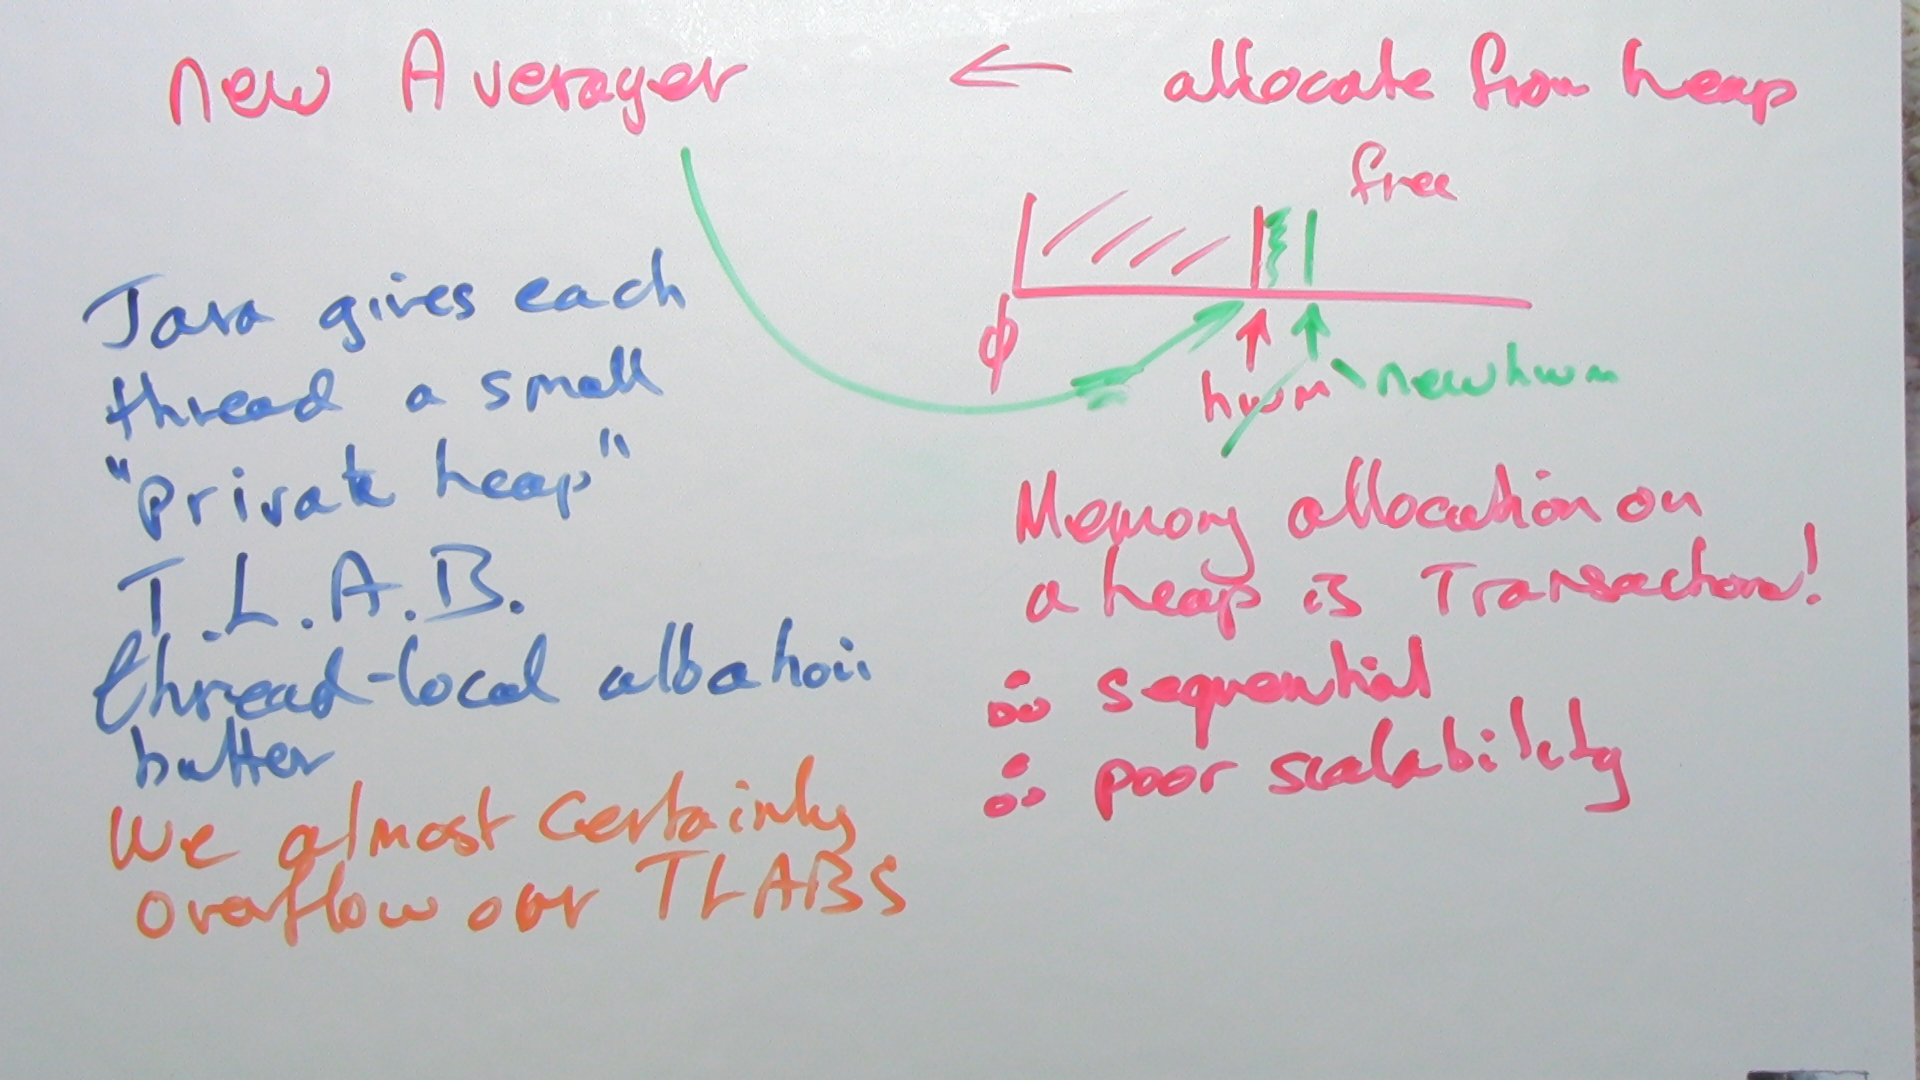 new Averager ← allocate from heap
free
φ
hwm newhwm
Java gives each
thread a small
"private heap"
T.L.A.B.
thread-local allocation
buffer
We almost certainly
overflow our TLABS
Memory allocation on
a heap is Transactional!
∴ sequential
∴ poor scalability